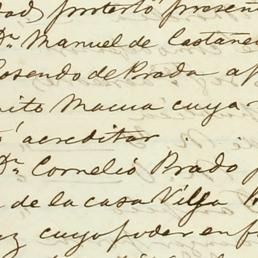 dad, protestó presen
Dn. Manuel de Castañe
Rosendo de Prada ap
nito Macua cuya
acreditar
Dn. Cornelio Prado p
de la casa Villa
cuyo poder en f